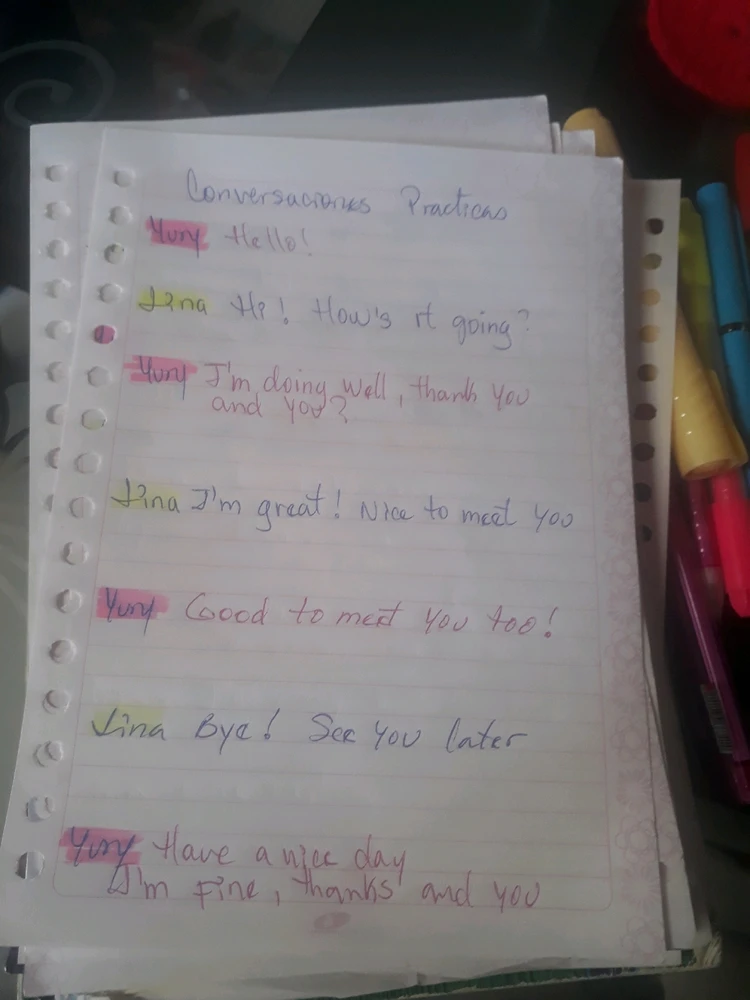 Conversaciones Practicas
Yury Hello!
Lina Hi! How's it going?
Yury I'm doing well, thank you
and you?
Lina I'm great! Nice to meet you
Yury Good to meet you too!
Lina Bye! See you later
Yury Have a nice day
I'm Fine, thanks and you